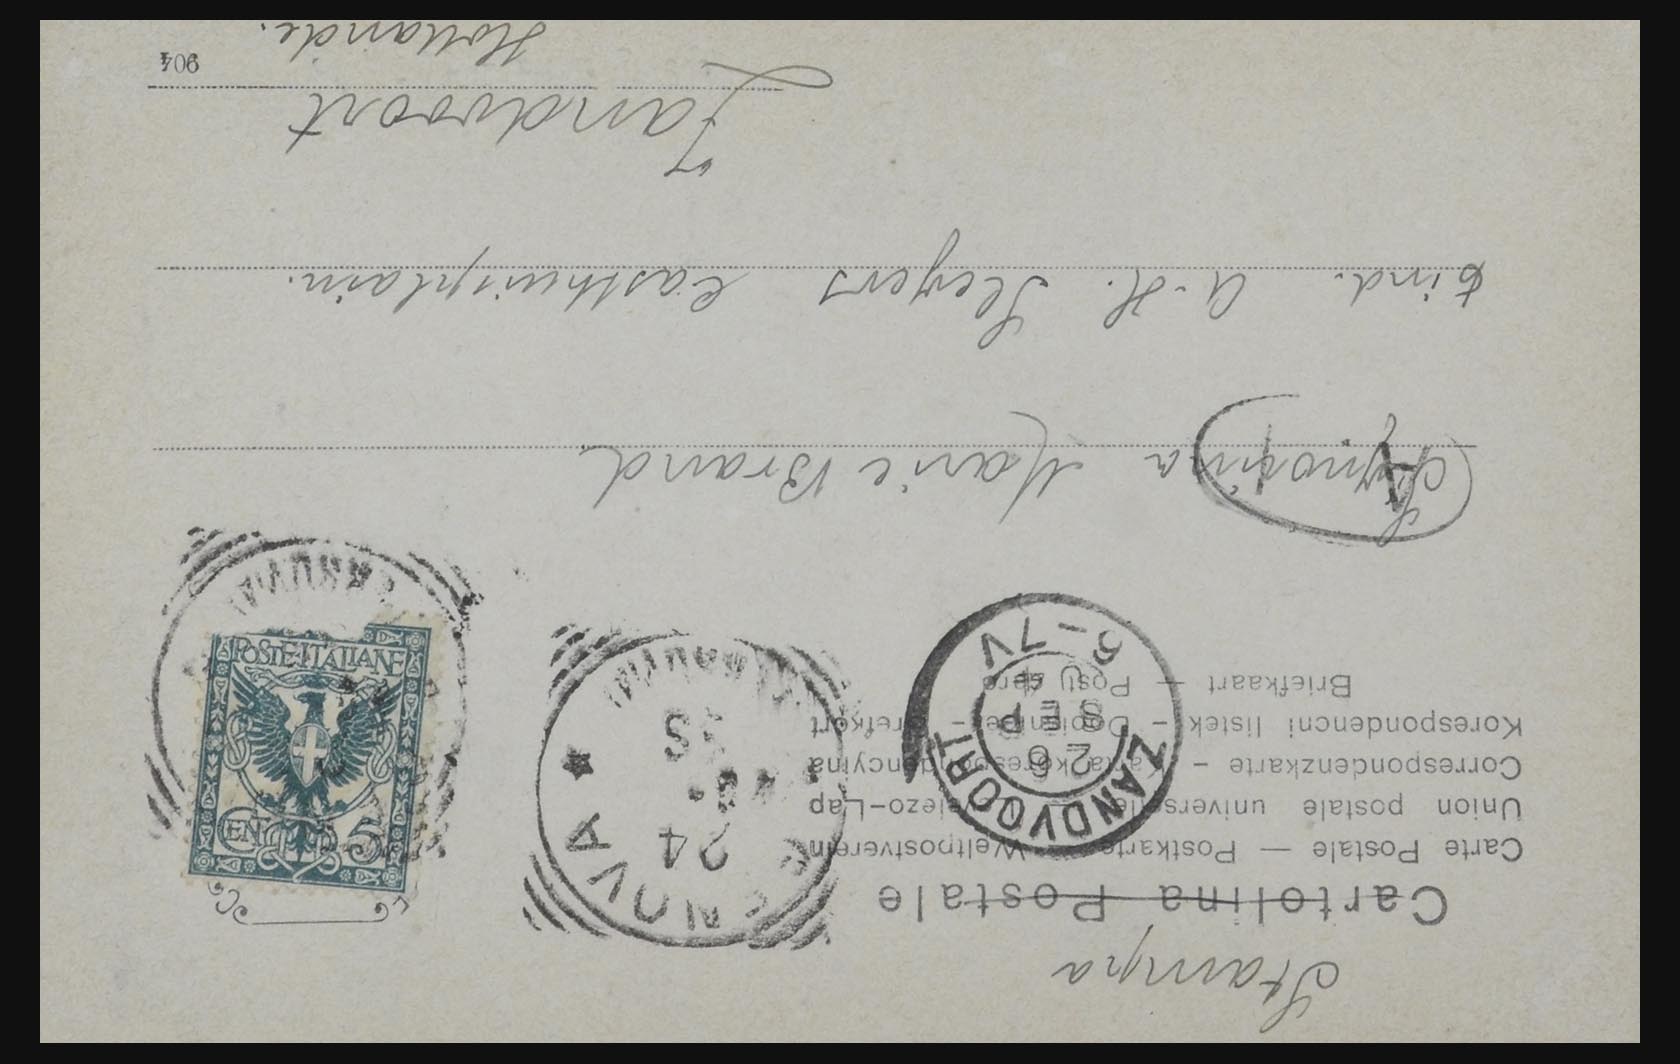 Stampa
Cartolina Postale
Carte Postale — Postkarte — Weltpostverein
Union postale universelle Levelezo-Lap
Correspondenzkarte – Karta korespondencyjna
Korespondencni listek – Dopisnice – Brefkort
Briefkaart — Postcard
ZANDVOORT
26
SEP
4
6-7V
GENOVA
24
POSTE·ITALIANE
CENT 5
A
Marie Brand
A. H. Slegers Gasthuisplein.
Zandvoort
Hollande.